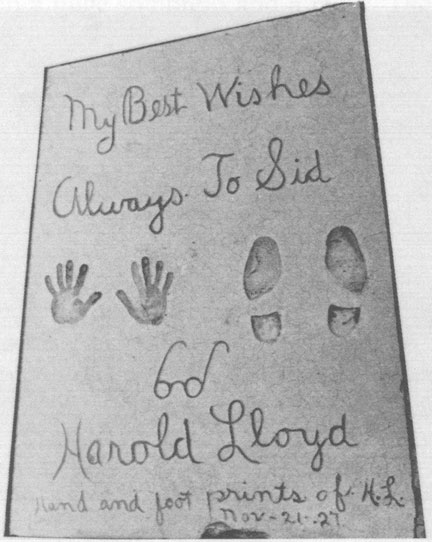 My Best Wishes
Always To Sid
Harold Lloyd
Hand and foot prints of H.L.
Nov-21-27